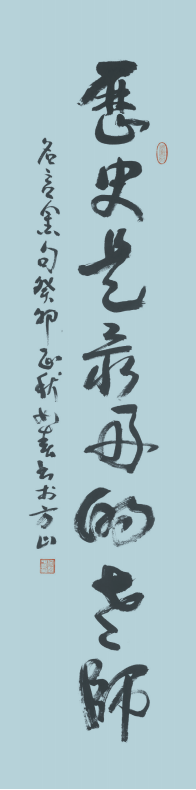 歷史是最好的老師
名言金句癸卯孟秋書於方山